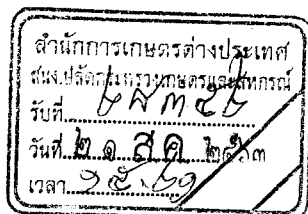 สำนักการเกษตรต่างประเทศ
สนง.ปลัดกระทรวงเกษตรและสหกรณ์
รับที่
วันที่ ๒๑ สค ๒๕๖๓
เวลา